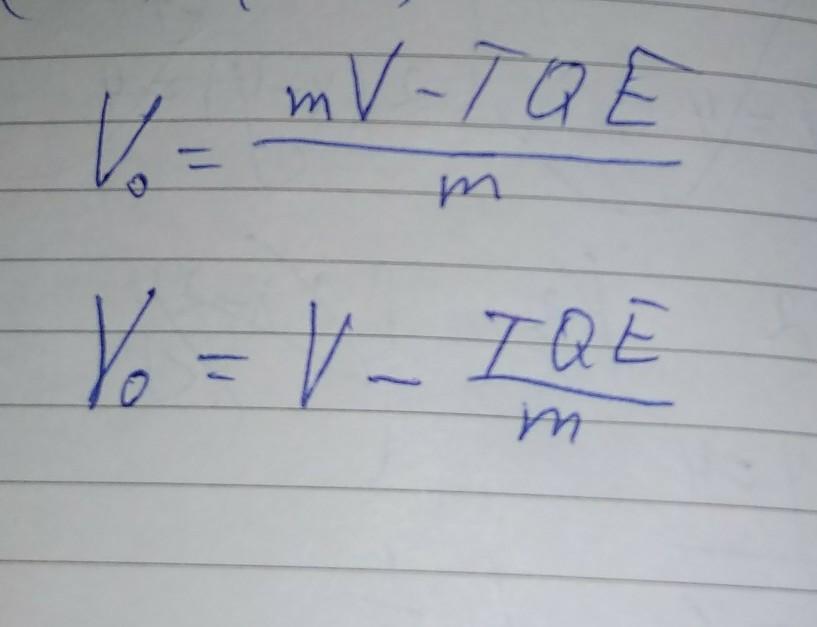 V₀ = (mV - TQE) / m
V₀ = V - TQE / m